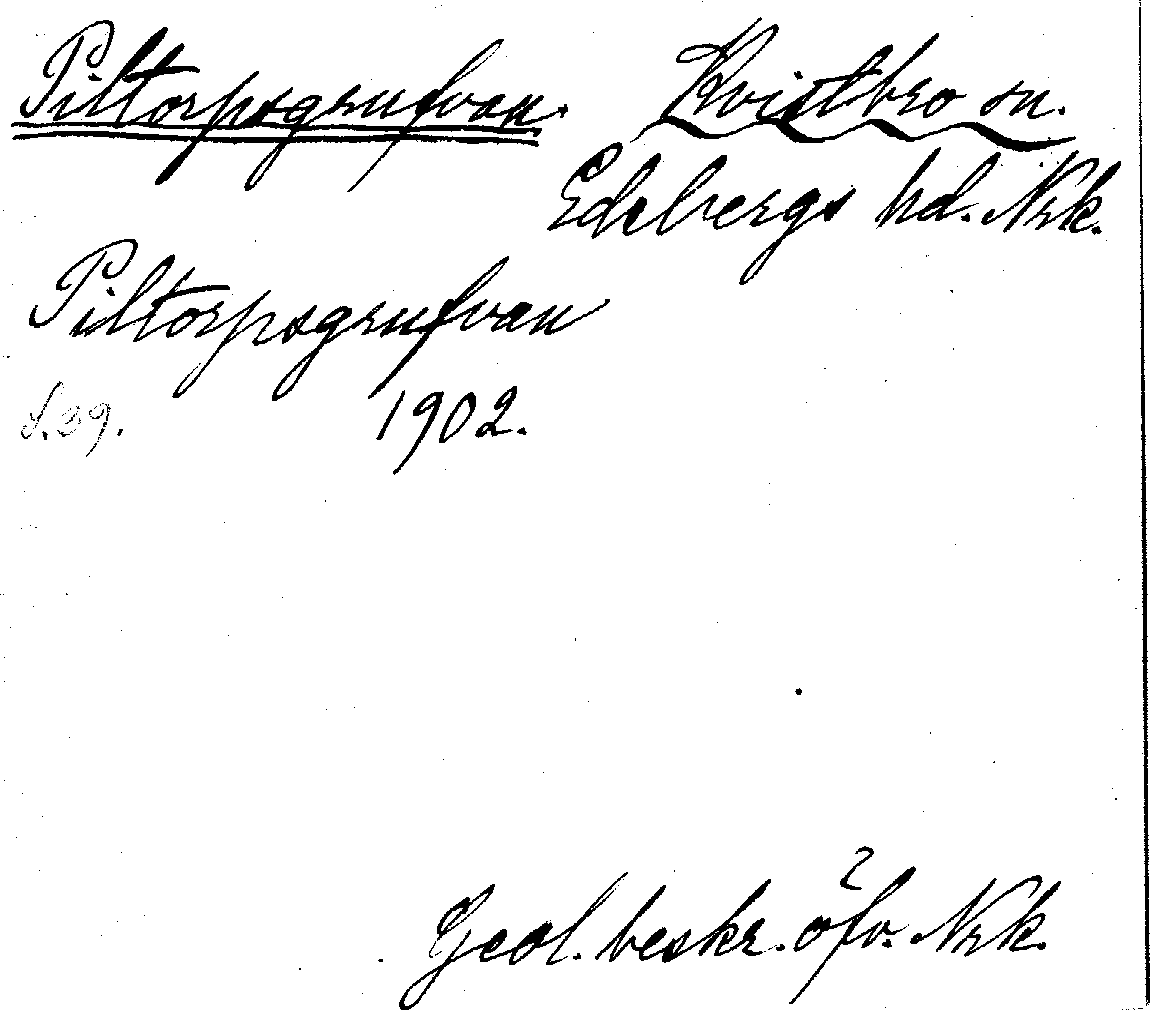 Piltorpsgrufvan. Kvistbro sn.
Edsbergs hd. Nrk.
Piltorpsgrufvan
s. 39. 1902.
Geol. beskr. öfv. Nrk.